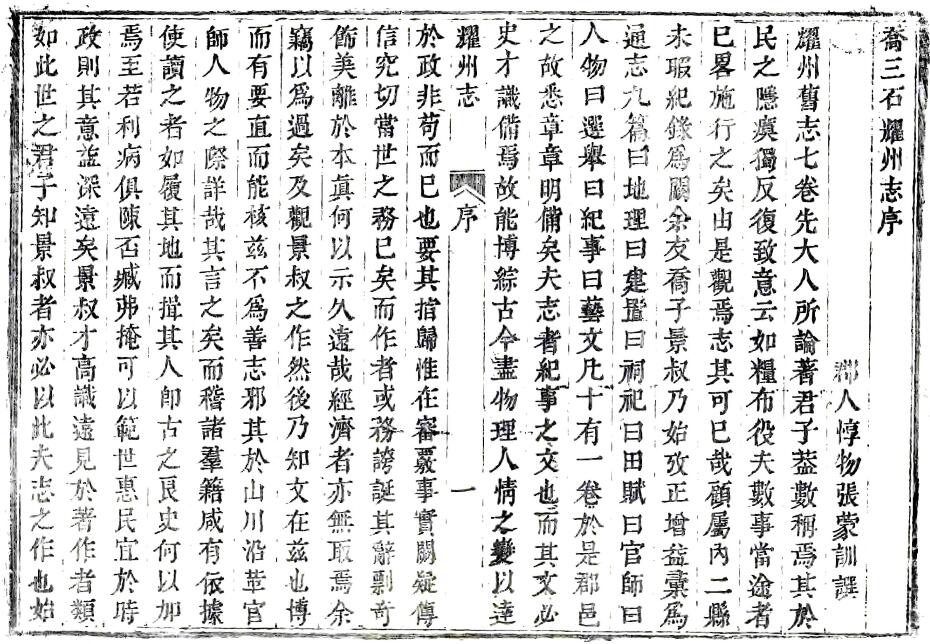 喬三石耀州志序
郡人惇物張蒙訓譔
耀州舊志七卷先大人所論著君子葢數稱焉其於
民之隱瘼獨反復致意云如糧布役夫數事當途者
已畧施行之矣由是觀焉志其可已哉顧屬內二縣
未暇紀錄爲闕余友喬子景叔乃始攷正增益彚爲
通志九篇曰地理曰建置曰祠祀曰田賦曰官師曰
人物曰選舉曰紀事曰藝文凡十有一卷於是郡邑
之故悉章章明備矣夫志者紀事之文也而其文必
史才識備焉故能博綜古今盡物理人情之變以達
耀州志 序 一
於政非苟而已也要其指歸惟在審覈事實闕疑傳
信究切當世之務已矣而作者或務誇誕其辭剽奇
飾美離於本眞何以示久遠哉經濟者亦無取焉余
竊以爲過矣及觀景叔之作然後乃知文在兹也博
而有要直而能核兹不爲善志邪其於山川沿革官
師人物之際詳哉其言之矣而稽諸羣籍咸有依據
使讀之者如履其地而揖其人卽古之良史何以加
焉至若利病俱陳否臧弗掩可以範世惠民宜於時
政則其意益深遠矣景叔才高識遠見於著作者類
如此世之君子知景叔者亦必以此夫志之作也始